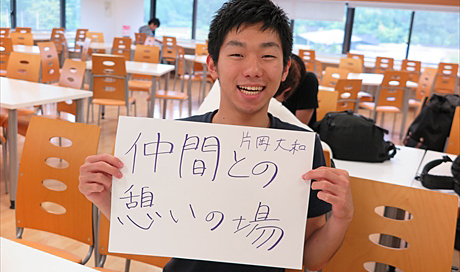 片岡大和
仲間との
憩いの場